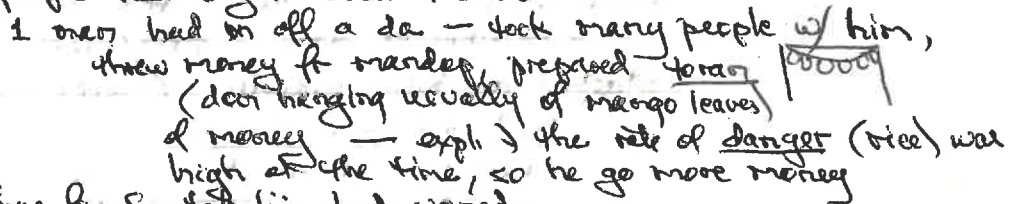 1 man had on off a da — took many people w/ him,
threw money fr mandap, prepared toran
(door hanging usually of mango leaves)
of money — expl. the rate of danger (rice) was
high at the time, so he go more money